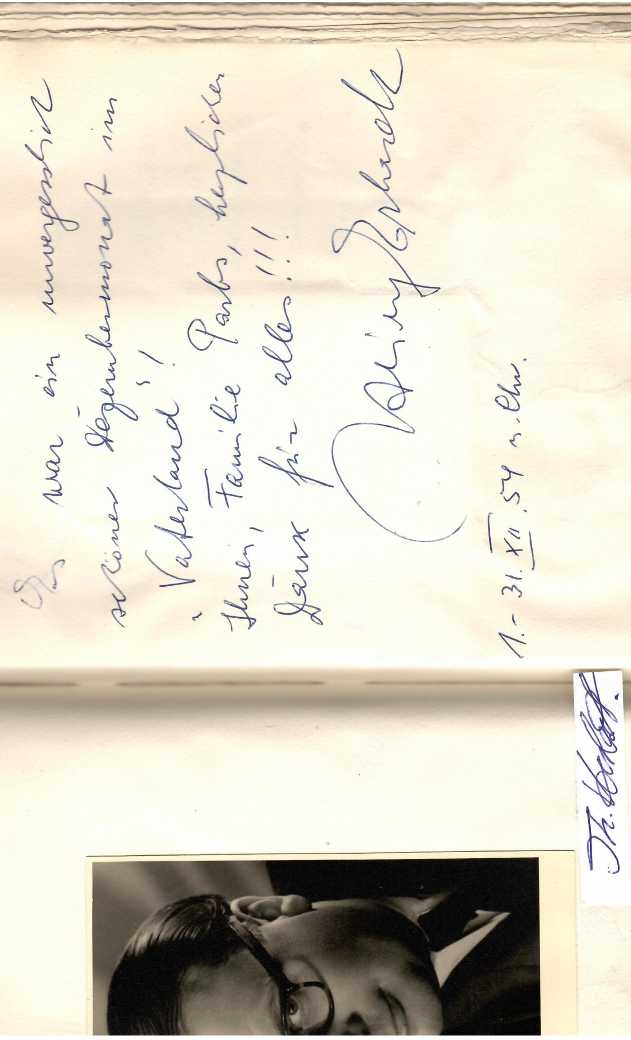 Es war ein unvergesslich
schöner Dezembermonat im
„Vaterland"!
Ihnen, Familie Parbs, herzlichen
Dank für alles!!!
Heinz Erhardt
1.- 31. XII. 54 n. Chr.
Th.